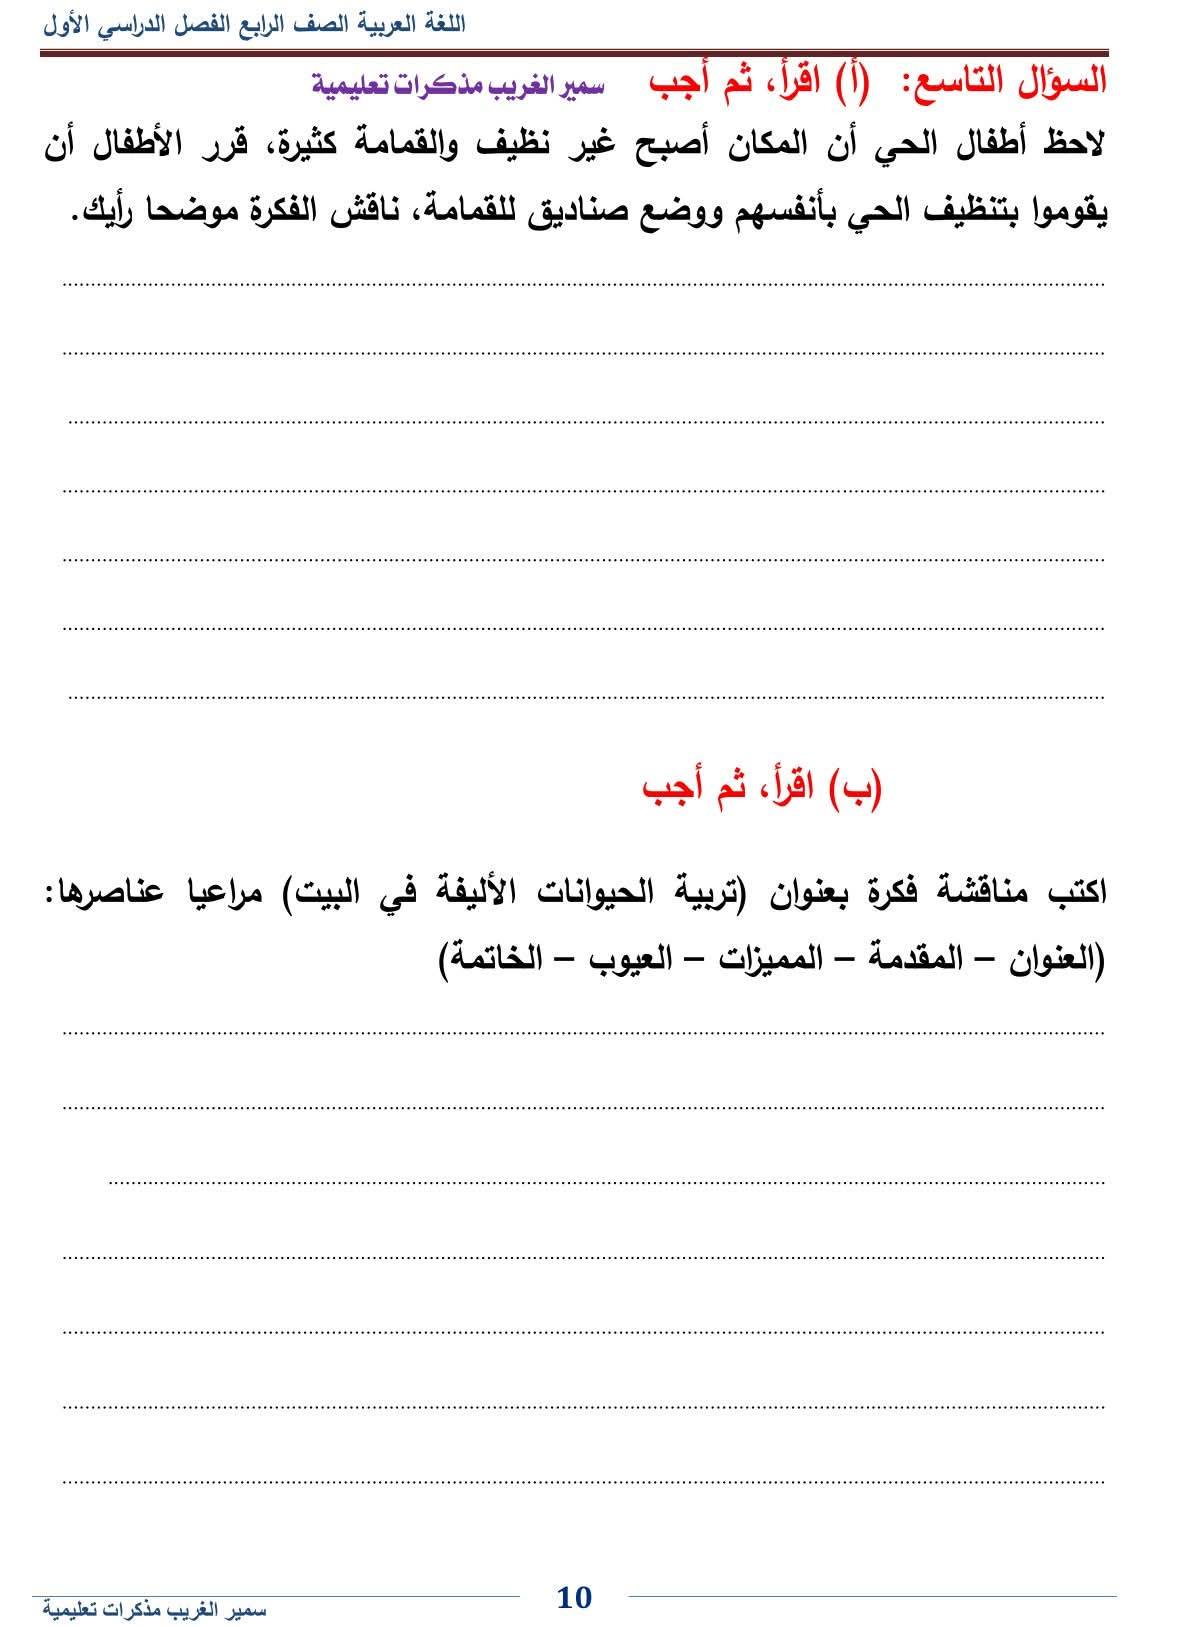 اللغة العربية الصف الرابع الفصل الدراسي الأول
السؤال التاسع: (أ) اقرأ، ثم أجب سمير الغريب مذكرات تعليمية
لاحظ أطفال الحي أن المكان أصبح غير نظيف والقمامة كثيرة، قرر الأطفال أن
يقوموا بتنظيف الحي بأنفسهم ووضع صناديق للقمامة، ناقش الفكرة موضحا رأيك.
(ب) اقرأ، ثم أجب
اكتب مناقشة فكرة بعنوان (تربية الحيوانات الأليفة في البيت) مراعيا عناصرها:
(العنوان – المقدمة – المميزات – العيوب – الخاتمة)
10
سمير الغريب مذكرات تعليمية